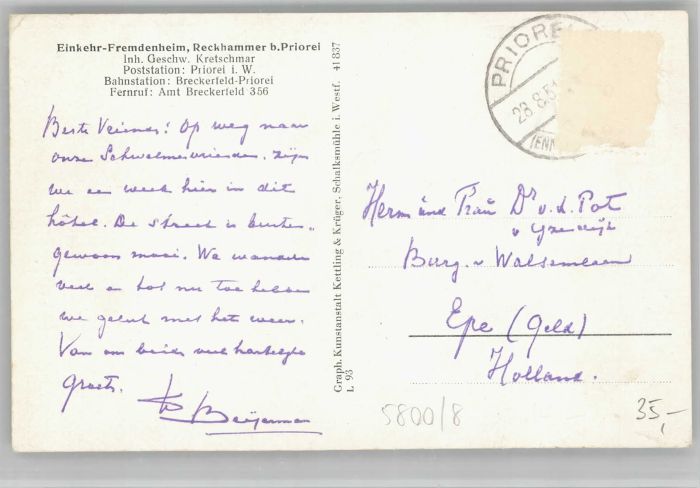 Einkehr-Fremdenheim, Reckhammer b.Priorei
Inh. Geschw. Kretschmar
Poststation: Priorei i. W.
Bahnstation: Breckerfeld-Priorei
Fernruf: Amt Breckerfeld 356
Beste Vriendes! Op weg naar
onze Schwelmer vrienden, zijn
we een week hier in dit
hôtel. De streek is buiten-
gewoon mooi. We wandelen
veel en tot nu toe hebben
we geluk met het weer.
Van ons beide veel hartelijke
groets.
Beijerman
Graph. Kunstanstalt Kettling & Krüger, Schalksmühle i. Westf. 41837
L 93
PRIOREI
28.8.51
(ENN
Herrn und Frau Dr v. d. Pot
v
Burg. v Walsemlaan
Epe (Geld)
Holland.
5800/8
35,-